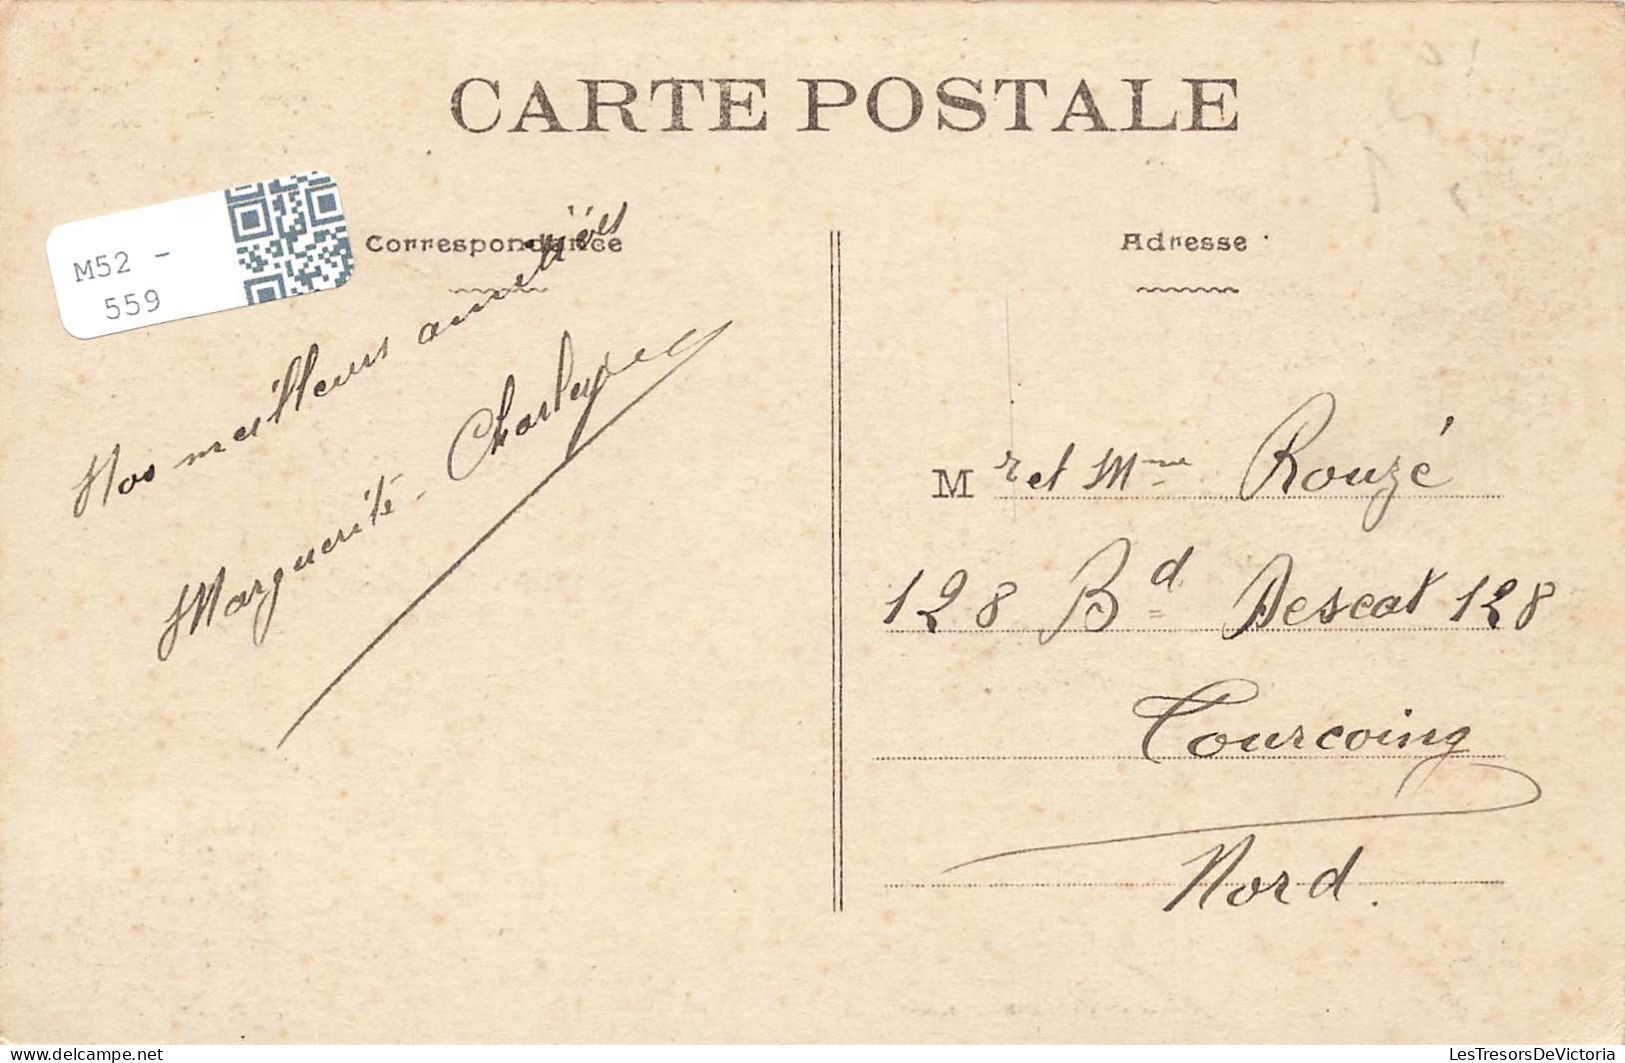 CARTE POSTALE
M52 -
559
Correspondance
Nos meilleurs amitiés
Marguerite - Charles
Adresse
Mr et Mme Rouzé
128 Bd Descat 128
Tourcoing
Nord.
LesTresorsDeVictoria
delcampe.net